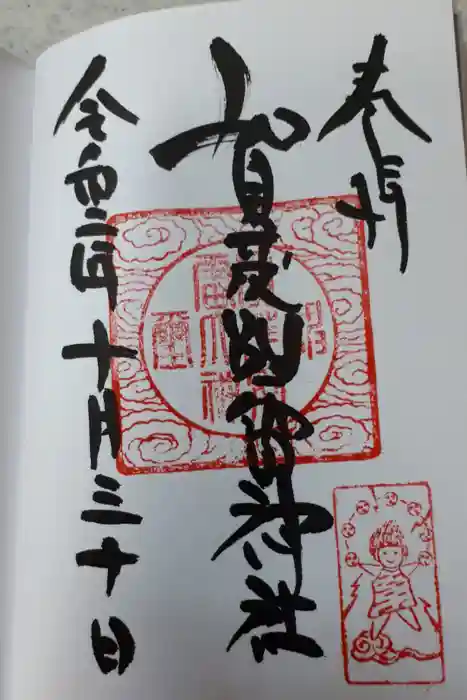 奉拝
賀茂別雷神社
令和二年十一月三十日